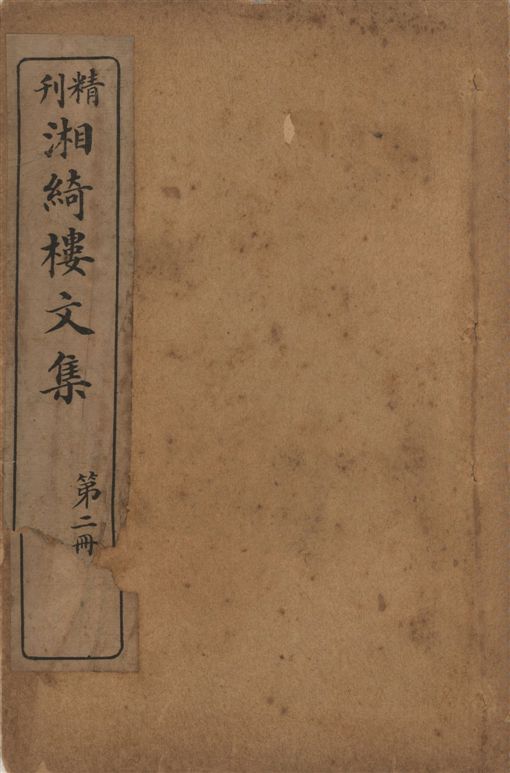 精刊
湘綺樓文集
第二冊